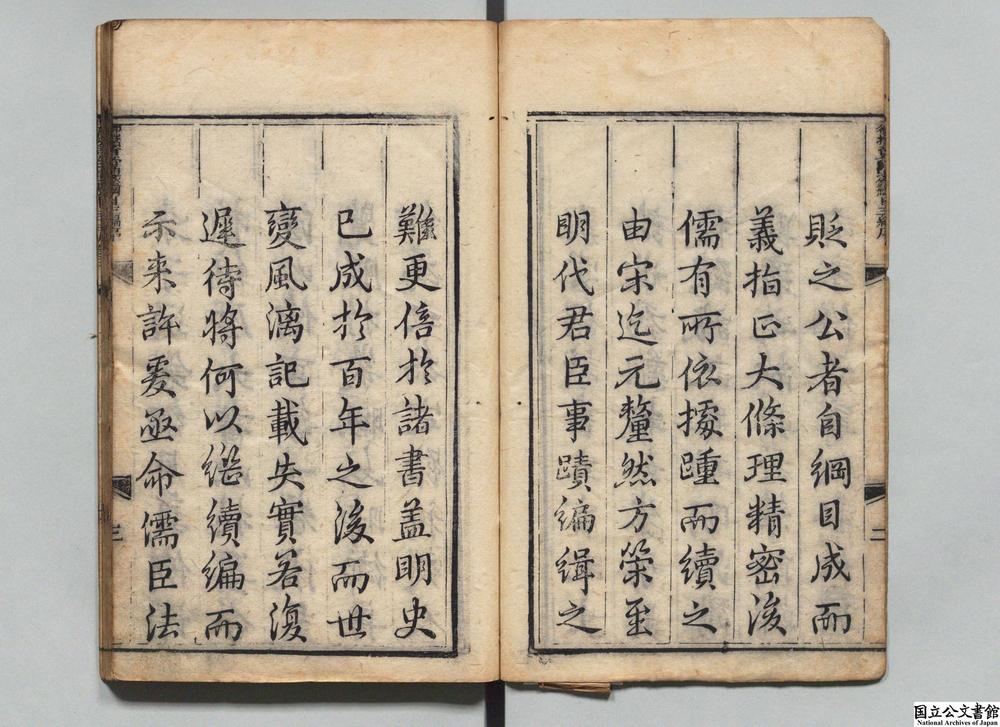 貶之公者自綱目成而
義指正大條理精密後
儒有所依據踵而續之
由宋迄元釐然方策至
明代君臣事蹟編緝之
二
難更倍於諸書蓋明史
已成於百年之後而世
變風漓記載失實若復
遲待將何以繼續編而
示來許爰亟命儒臣法
三
国立公文書館
National Archives of Japan